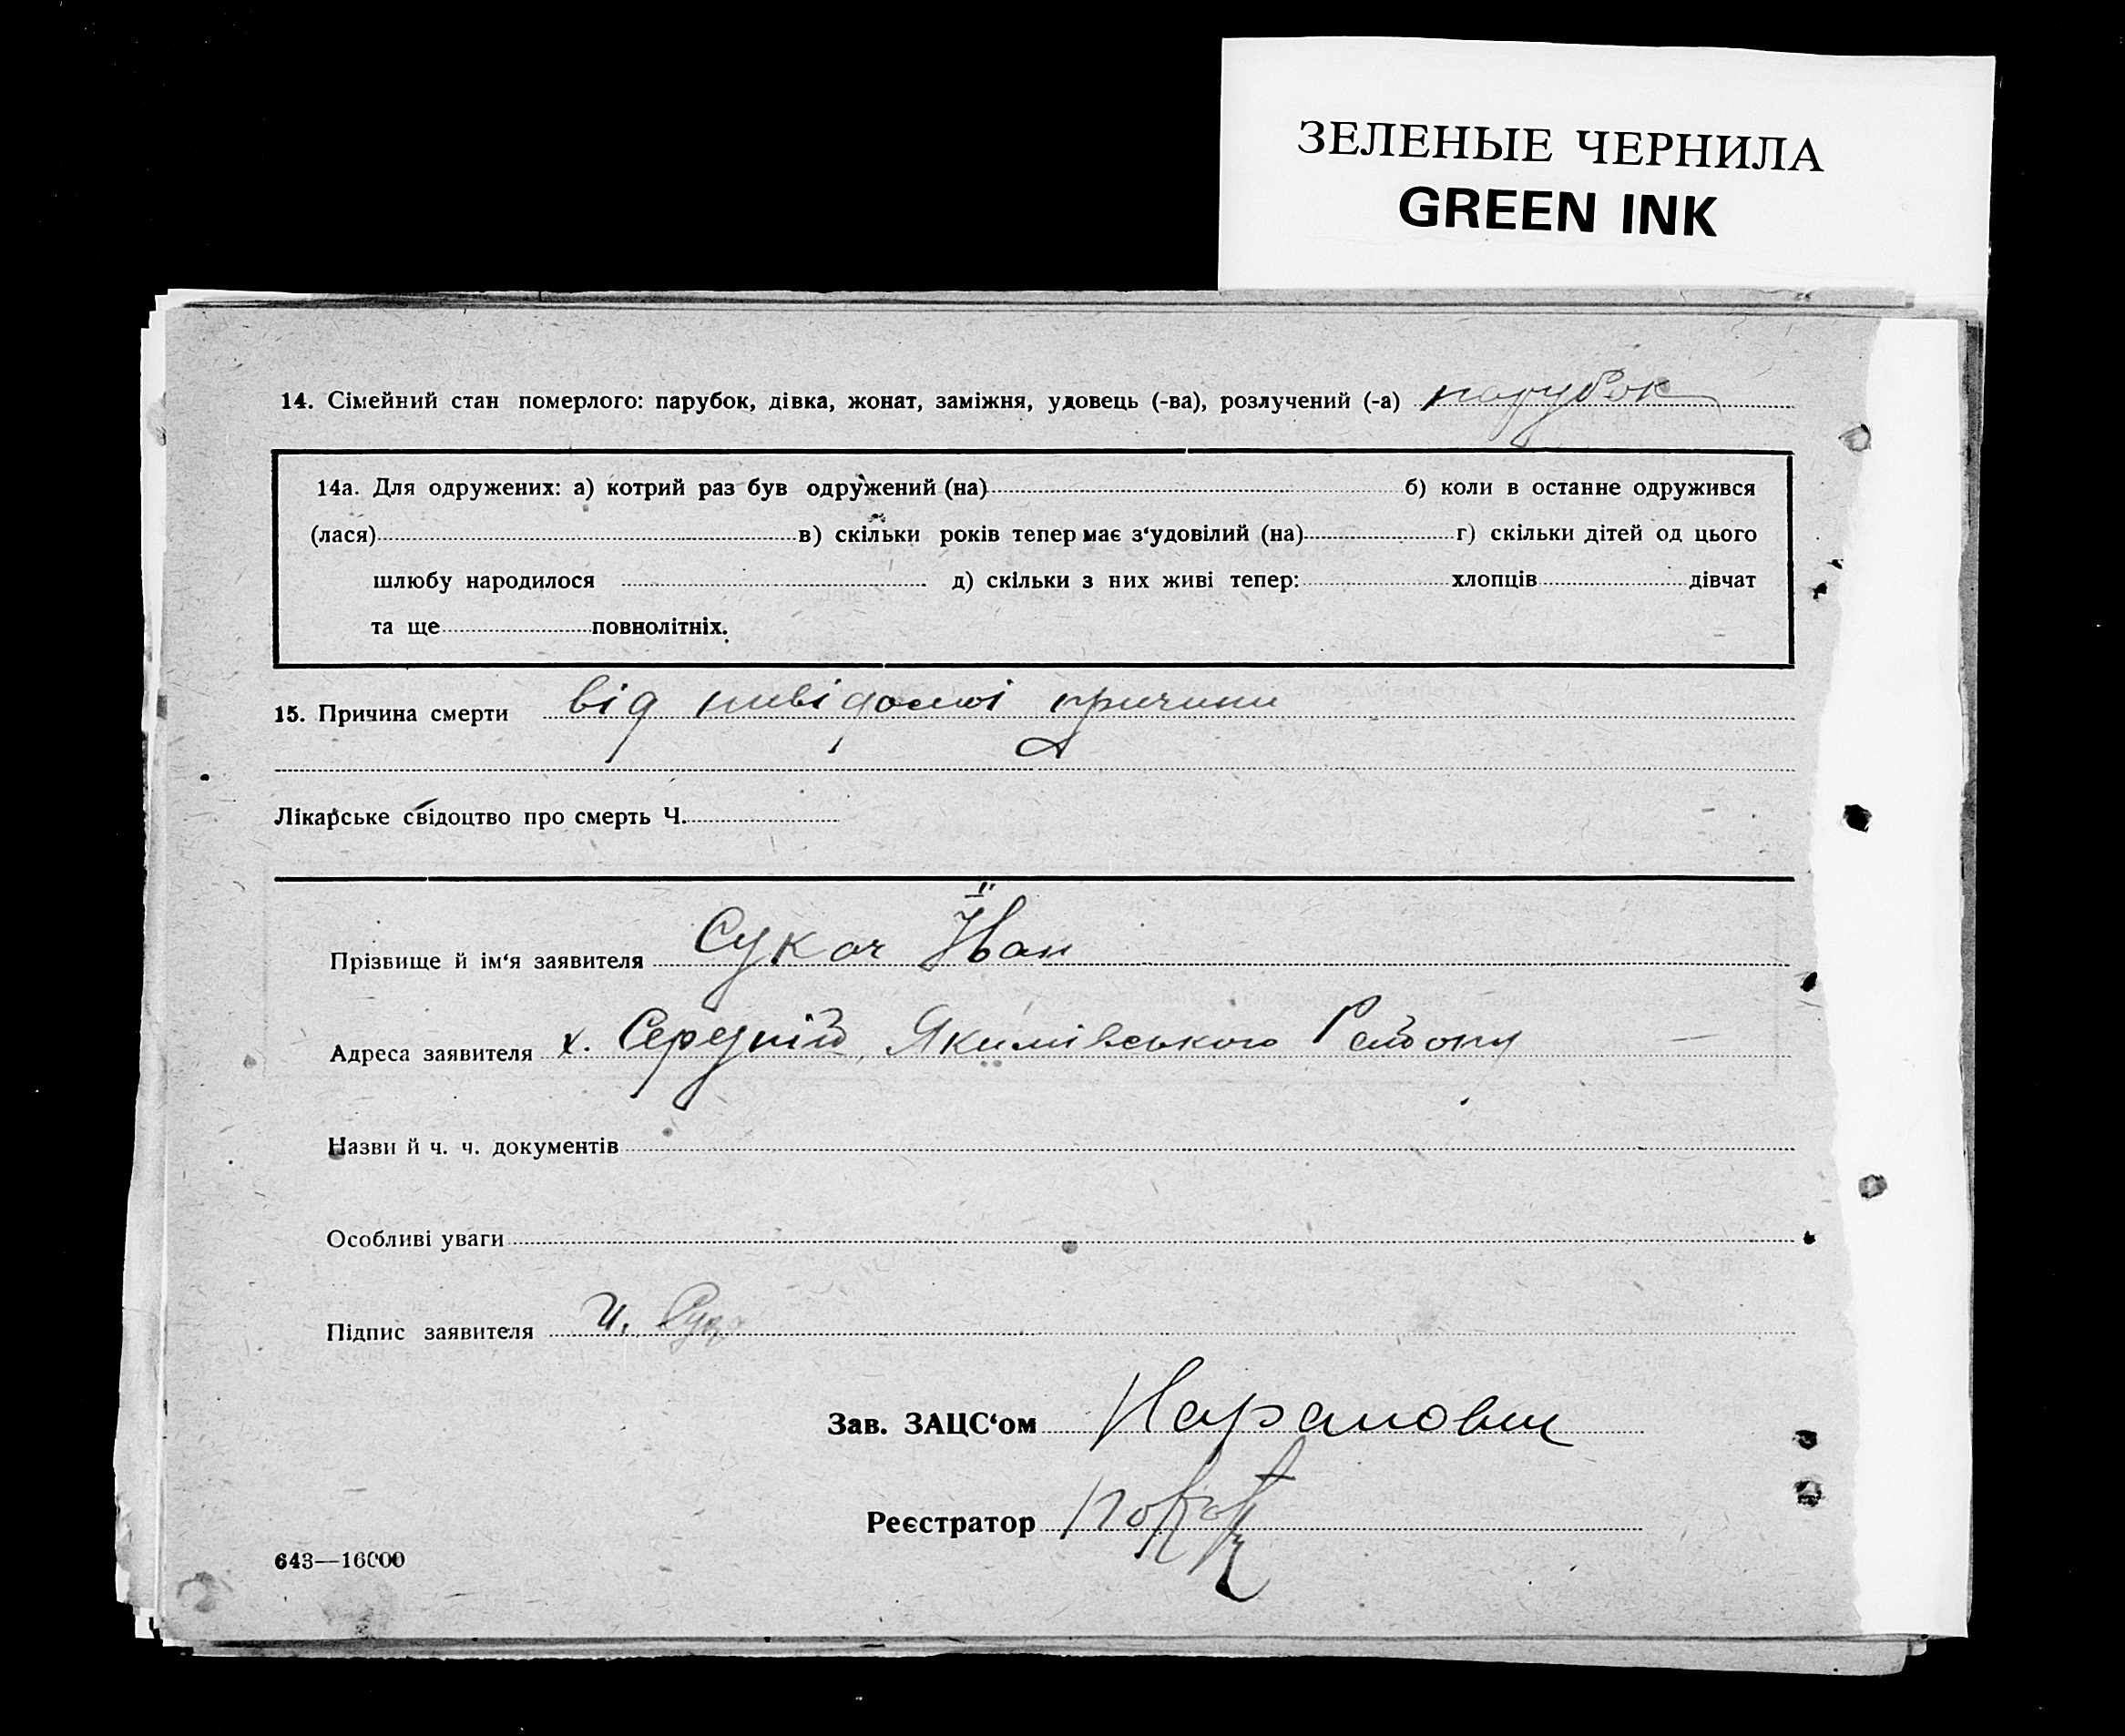 ЗЕЛЕНЫЕ ЧЕРНИЛА
GREEN INK
14. Сімейний стан померлого: парубок, дівка, жонат, заміжня, удовець (-ва), розлучений (-а) парубок
14а. Для одружених: а) котрий раз був одружений (на) б) коли в останне одружився
(лася) в) скільки років тепер має з‘удовілий (на) г) скільки дітей од цього
шлюбу народилося д) скільки з них живі тепер: хлопців дівчат
та ще повнолітніх.
15. Причина смерти від невідомої причини
Лікарське свідоцтво про смерть Ч.
Прізвище й ім‘я заявителя Сукач Іван
Адреса заявителя х. Середній, Якимівського Району
Назви й ч. ч. документів
Особливі уваги
Підпис заявителя И.
Зав. ЗАЦС‘ом
Реєстратор
643—16000